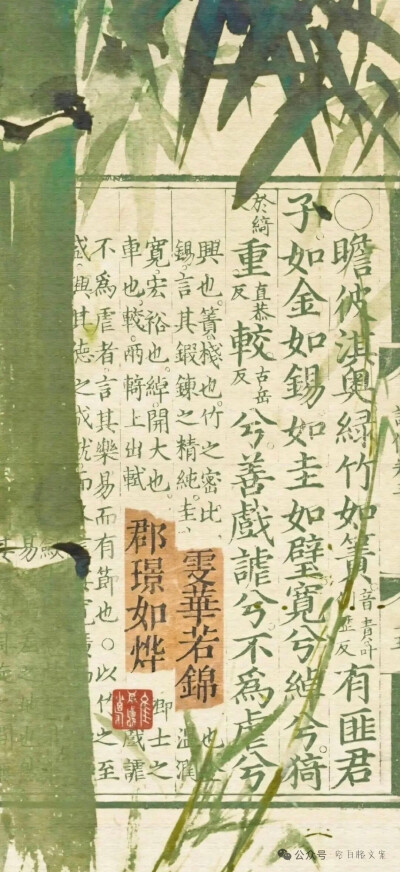 ○瞻彼淇奧綠竹如簀音責叶有匪君
子如金如錫如圭如璧寬兮綽兮猗
於綺反重直恭反較古岳反兮善戲謔兮不為虐兮
興也。簀棧也。竹之密比
錫言其鍛鍊之精純。圭
溫潤
寬。宏裕也。綽開大也
卿士之
車也。較。兩輢上出軾
戲謔
不為虐者。言其樂易而有節也。○以竹之至
盛興其德之成就而
雯華若錦
郡璟如烨
公众号